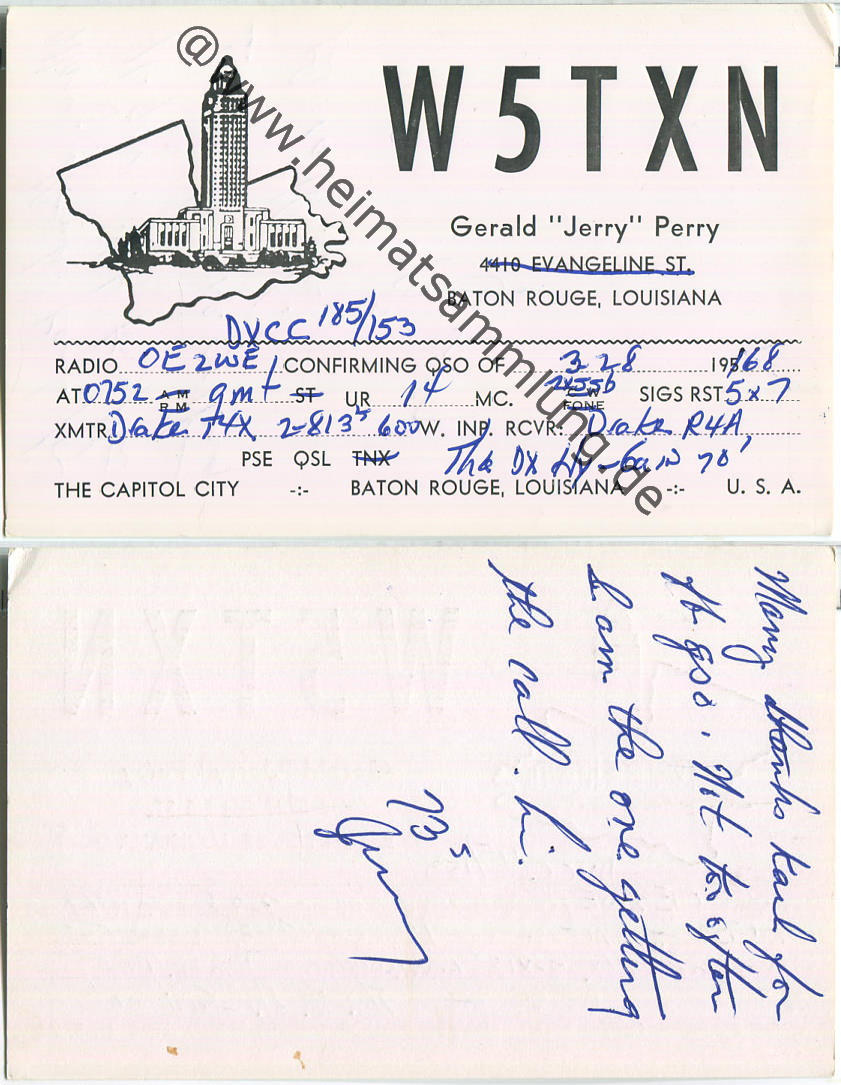 W5TXN
Gerald "Jerry" Perry
4410 EVANGELINE ST.
BATON ROUGE, LOUISIANA
DXCC 185/153
RADIO OE2WE CONFIRMING QSO OF 3 28 195/68
AT 0752 AM PM gmt ST UR 14 MC. 2xSSb CW FONE SIGS RST 5x7
XMTR Drake T4X 2-813s 600 W. INP. RCVR: Drake R4A
PSE QSL TNX The DX Hy-Gain 70'
THE CAPITOL CITY -:- BATON ROUGE, LOUISIANA -:- U. S. A.
@www.heimatsammlung.de
Many thanks Karl for
th qso. Not to often
I am the one getting
the call. hi.
73s
Jerry